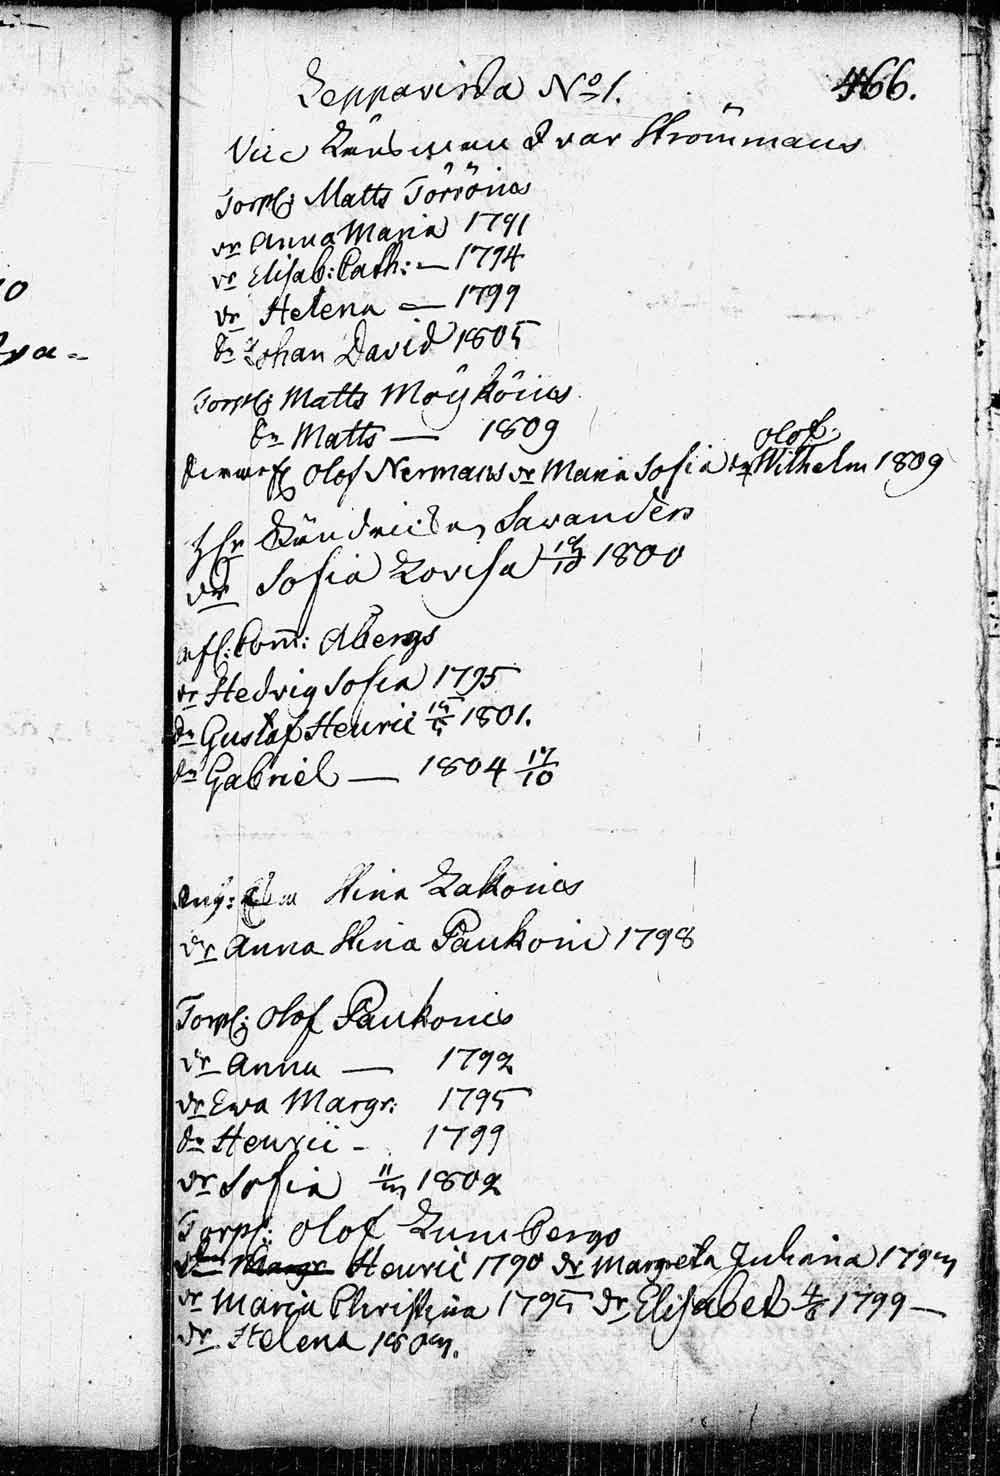 466.
Leppavirda No 1.
Vice Länsman Ivar Strömmans
Torp: Matts Törrönes
dr Anna Maria 1791
dr Elisab: Cath: — 1794
dr Helena — 1799
Sn Johan David 1805
Torp: Matts Möykönes
Sn Matts — 1809
Olof Nermans dr Maria Sofia Sn Wilhelm 1809
Olof
Savanders
dr Sofia Lovisa 1800
afl: Åbergs
dr Hedvig Sofia 1795
Sn Gustaf Henric 1801.
Sn Gabriel — 1804 17/10
Stina Lakones
dr Anna Stina Paukoin 1798
Torp: Olof Paukones
dr Anna — 1792
dr Ewa Margr: 1795
Sn Henric - 1799
dr Sofia 1802
Torp: Olof Lumbergs
Henric 1790 dr Margreta Juliana 179
dr Maria Christina 1795 dr Elisabet 1799 —
dr Helena 180
0